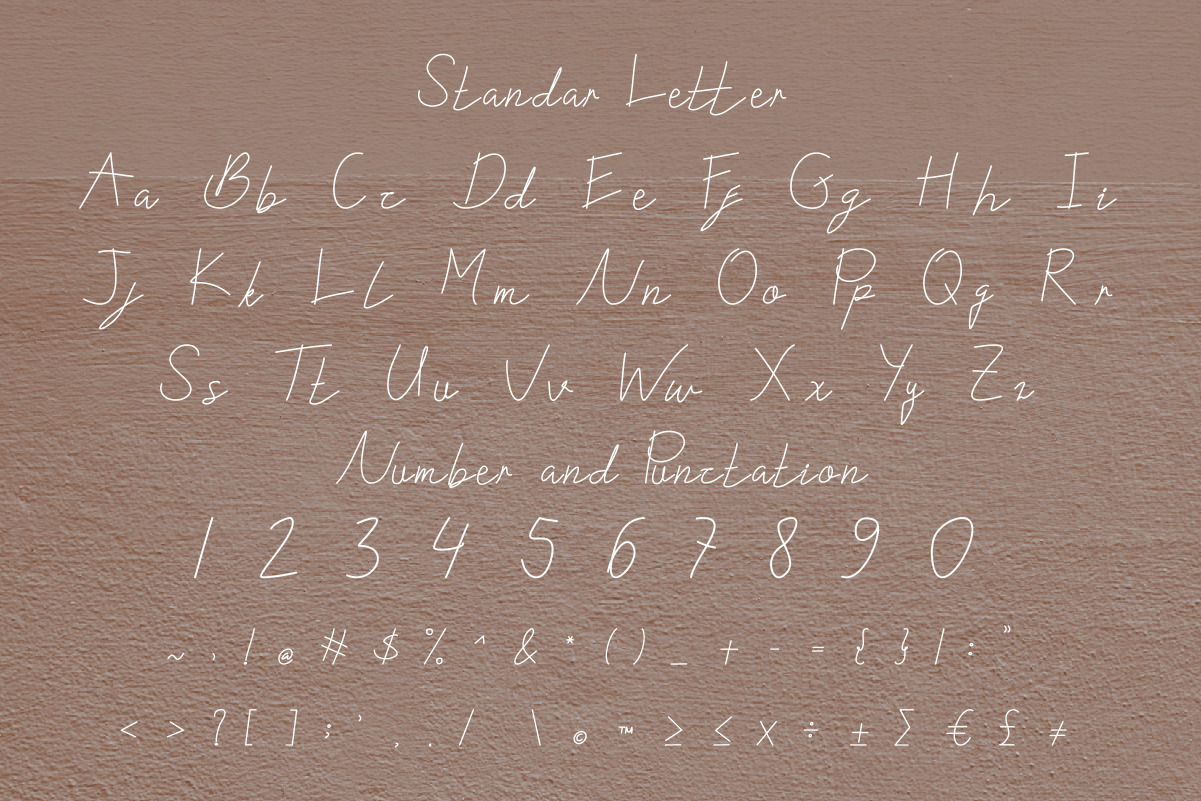 Standar Letter
Aa Bb Cc Dd Ee Ff Gg Hh Ii
Jj Kk Ll Mm Nn Oo Pp Qq Rr
Ss Tt Uu Vv Ww Xx Yy Zz
Number and Punctation
1 2 3 4 5 6 7 8 9 0
~ , ! @ # $ % ^ & * ( ) _ + - = { } | : ”
< > ? [ ] ; ’ , . / \ © ™ ≥ ≤ × ÷ ± ∑ € £ ≠